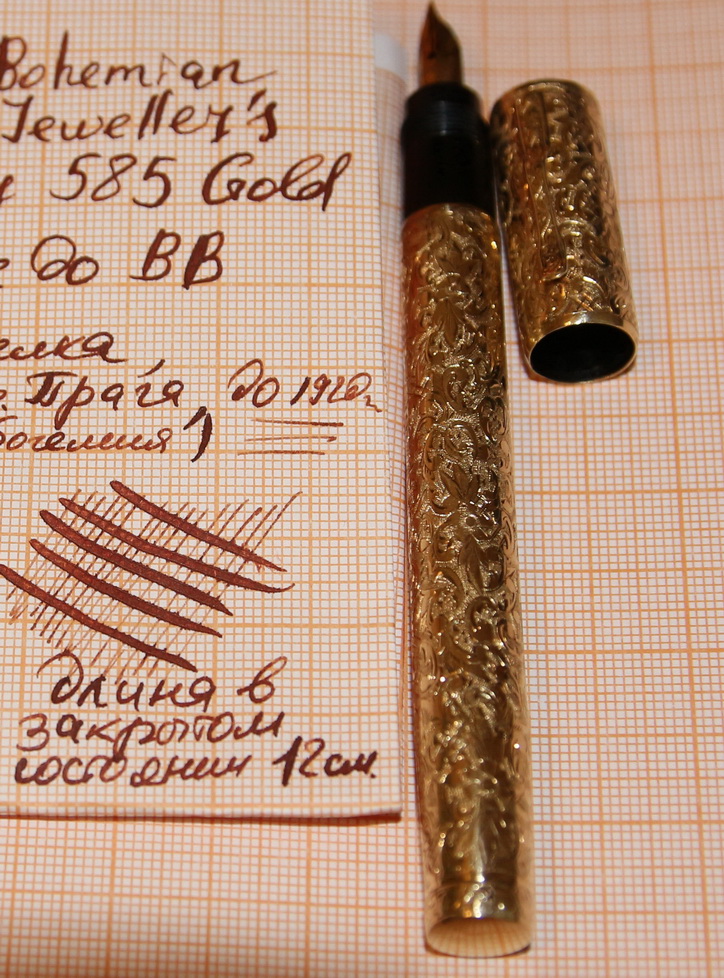 Bohemian
Jeweller's
585 Gold
до ВВ
елка
Прага, до 1920г
богемия")
длина в
закрытом
состоянии 12см.